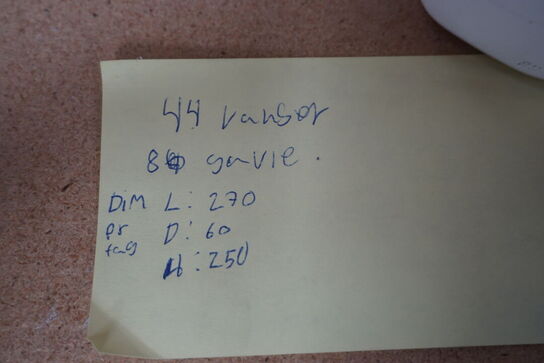 44 vanger
8 gavle.
DIM L: 270
pr D: 60
fag
H: 250